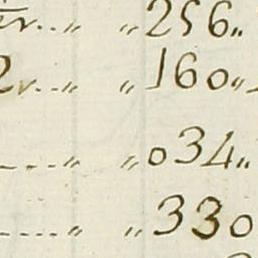 r..〃 〃256〃
2r..〃 〃160〃
....〃 〃034〃
.....〃 〃330